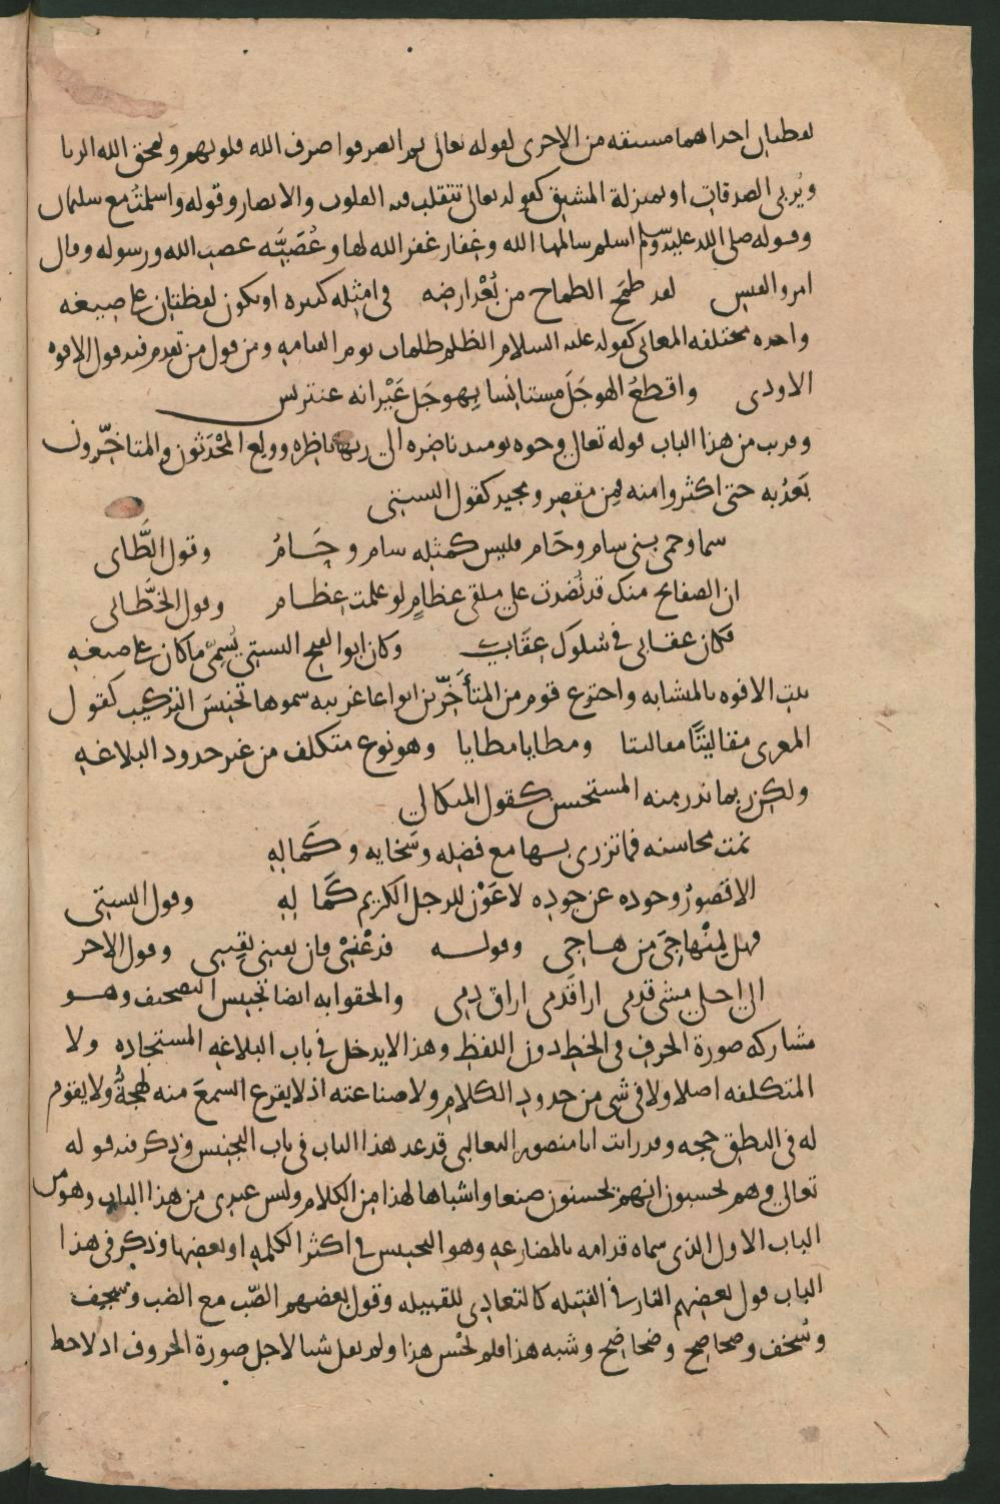 لفظتان احداهما مشتقه من الاخرى لقوله تعالى ثم انصرفوا صرف الله قلوبهم ويمحق الله الربا
ويُربى الصدقات او بمنزلة المشتق كقوله تعالى تتقلب فيه القلوب والابصار وقوله واسلمتُ مع سليمان
وقوله صلى الله عليه وسلم اسلم سالمها الله وغفار غفر الله لها وعُصَيَّه عصت الله ورسوله وقال
امرو القيس لقد طمَح الطماح من بُعْد ارضه فى امثله كثيره او تكون لفظتان على صيغه
واحده مختلفه المعانى كقوله عليه السلام الظلم ظلمات يوم القيامه ومن قول من تقدم فيه قول الافوه
الاودى واقطعُ الهوجَلَ مستانسا بِهوجَل عَيْرانه عنتريس
وقريب من هذا الباب قوله تعالى وجوه يومئذ ناضره الى ربها ناظره وولع المُحْدَثون والمتاخّرون
بَعدُ به حتى اكثروا منه فمِن مقصر ومجيد كقول البستى
سما وحمى بنى سام وحَام فليس كمثله سام وحَامُ وقول الطَّاى
ان الصفايح منك قد نُضدت على ملقى عظامٍ لو علمت عِظام وقول الخطَّابى
فكان عقابى فى سُلوك عِقَابِ وكان ابو الفتح البستى يُسمّى ما كان على صيغه
بيت الافوه بالمتشابه واخترع قوم من المتأخّرين انواعا غريبه سموها تجنيسَ التركيب كقول
المعرى مغاليتًا مغاليتا ومطايا مطايا وهو نوع متكلف من غير حدود البلاغه
ولكن ربما ندر منه المستحسن كقول الميكالى
تمت محاسنه فما تزرى بسها مع فضله وسَخايه وكَمالِهِ
الا قصورُ وجوده عن جوده لا عَوْن للرجل الكريم كَما لِهِ وقول البستى
فهل لِمنْهاجىَ مِن هاجى وقوله فدعْنىْ فان يقينى يَقِينى وقول الاخر
الى اجل مشى قدمى ارا قَدمى اراق دمى والحقوا به ايضا تجنيس التصحيف وهو
مشاركه صورة الحرف فى الخط دون اللفظ وهذا لا يدخل فى باب البلاغه المستجاده ولا
المتكلفه اصلا ولا فى شى من حدود الكلام ولا صناعته اذ لا يقرع السمعَ منه لهجةٌ ولا يقوم
له فى النطق حجه وقد رايت ابا منصور الثعالبى قد عد هذا الباب فى باب التجنيس وذكر فيه قوله
تعالى وهم يحسبون انهم يحسنون صنعا واشباها لهذا من الكلام وليس عندى من هذا الباب وهو من
الباب الاول الذى سماه قدامه بالمضارعه وهو التجنيس فى اكثر الكلمه او بعضها وذكر فى هذا
الباب قول بعضهم القار فى القتيله كالتعادى للقبيله وقول بعضهم الصّب مع الضب وسجيف
وسُخف وصحاصح وضحاضح وشبه هذا فلم يحْسن هذا ولم يقل شيا لاجل صورة الحروف اذ لاحظ